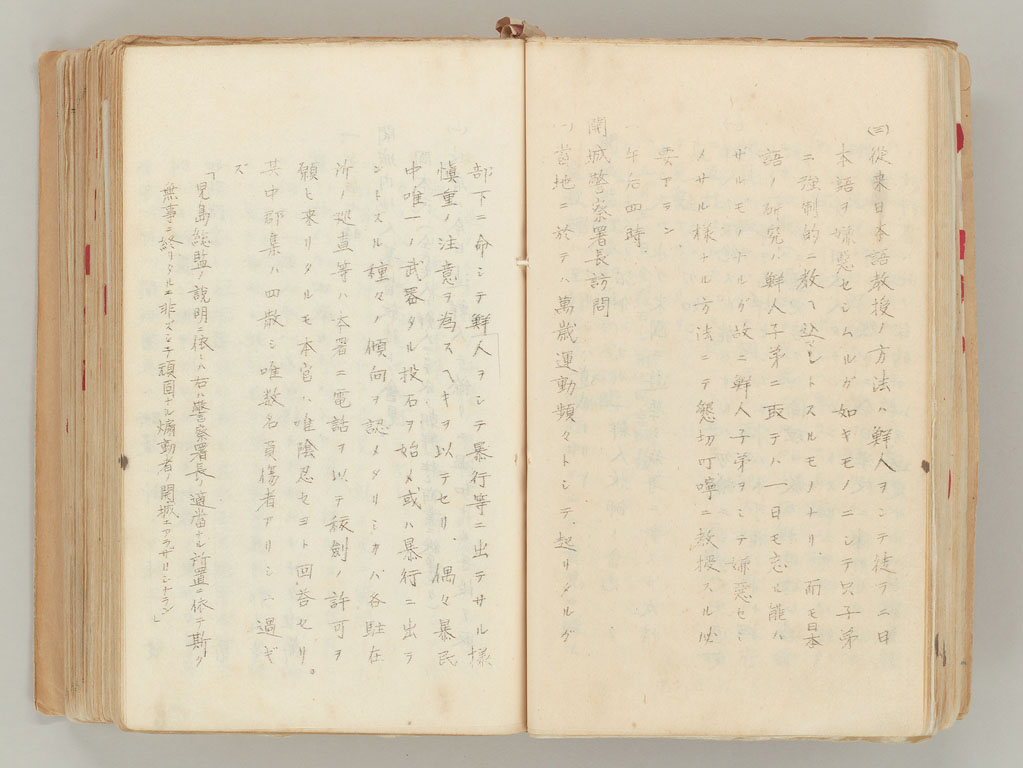 (三)従来日本語教授ノ方法ハ鮮人ヲシテ徒ヲニ日
本語ヲ嫌悪セシムルガ如キモノニシテ只子弟
ニ強制的ニ教ヘ込マントスルモノナリ而モ日本
語ノ研究ハ鮮人子弟ニ取テハ一日モ忘ル能ハ
ザルモノナルガ故ニ鮮人子弟ヲシテ嫌悪セシ
メサル様ナル方法ニテ懇切叮嚀ニ教授スル必
要アラン
一、午后四時
開城警察署長訪問
一、當地ニ於テハ萬歳運動頻々トシテ起リタルガ
部下ニ命シテ鮮人ヲシテ暴行等ニ出テサル様
慎重ノ注意ヲ為スヘキヲ以テセリ、偶々暴民
中唯一ノ武器タル投石ヲ始メ或ハ暴行ニ出ラ
ントスル種々ノ傾向ヲ認メタリシカバ各駐在
所ノ巡査等ハ本署ニ電話ヲ以テ稼剣ノ許可ヲ
願ヒ来リタルモ本官ハ唯陰忍セヨト回答セリ。
其中群集ハ四散シ唯数名負傷者アリシニ過ギ
ズ
「児島総監説明ニ依レハ右ハ警察署長ノ適當ナル所置ニ依テ斯ク
無事ニ終リタルニ非ズシテ頑固ナル煽動者ノ開城ニアラザリシナラン」